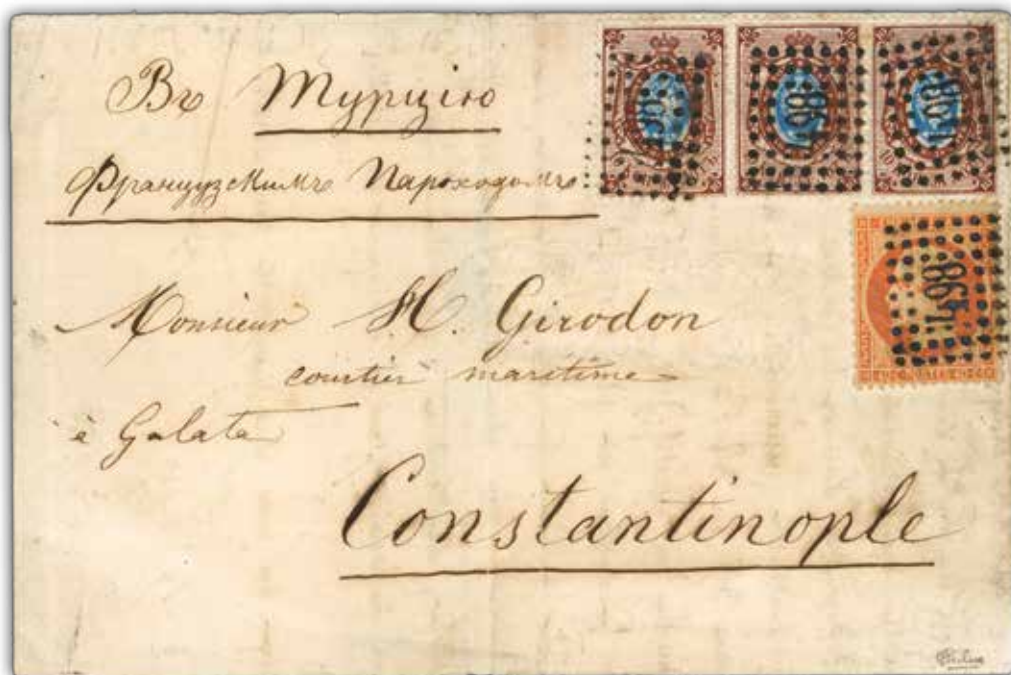 Въ Турцію
Французскимъ Пароходомъ
Monsieur H. Girodon
courtier maritime
à Galata
Constantinople
10
10